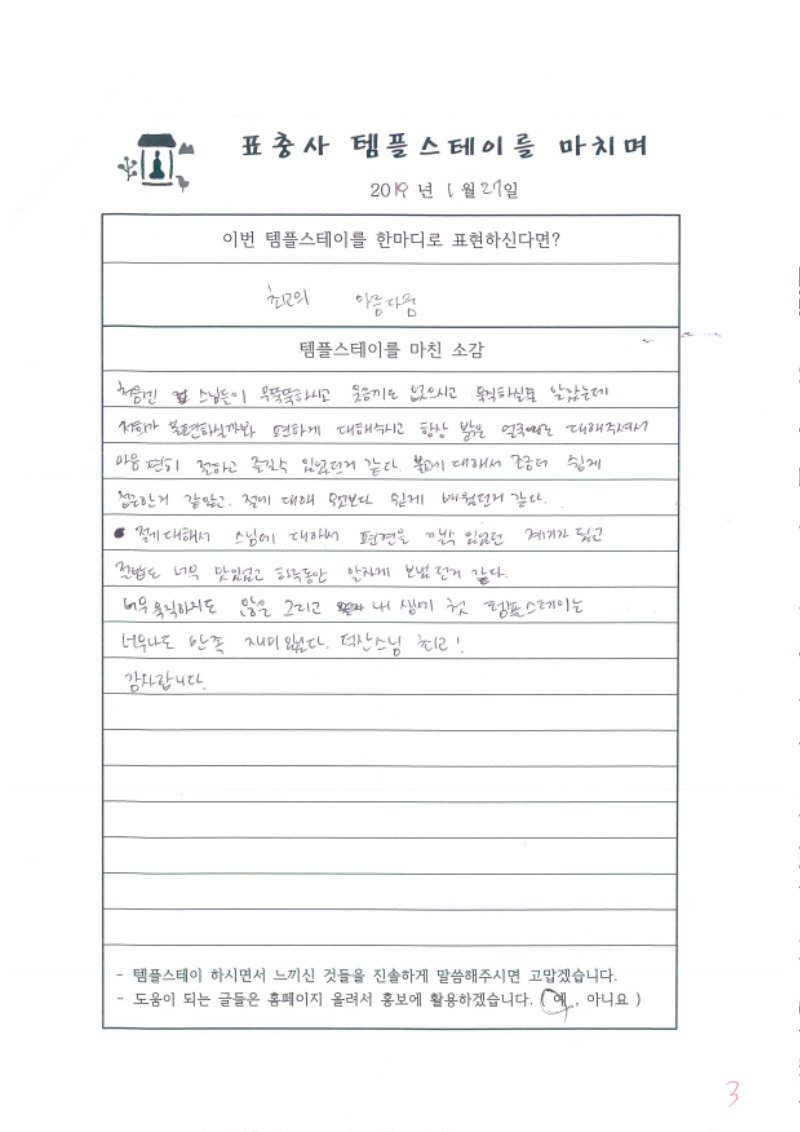 표충사 템플스테이를 마치며
2019 년 1 월 27일
이번 템플스테이를 한마디로 표현하신다면?
최고의 아름다움
템플스테이를 마친 소감
처음엔 스님들이 무뚝뚝하시고 웃음기도 없으시고 묵직하실줄 알았는데
저희가 불편하실까봐 편하게 대해주시고 항상 밝은 얼굴로 대해주셔서
마음 편히 절하고 즐길수 있었던거 같다. 불교에 대해서 조금더 쉽게
접근한거 같았고. 절에 대해 무엇보다 쉽게 배웠던거 같다.
절에대해서 스님에 대하서 편견을 깨볼수 있었던 계기가 됬고
절밥도 너무 맛있었고 하루동안 알차게 보냈던거 같다.
너무 묵직하지도 않은 그리고 내 생에 첫 템플스테이는
너무나도 만족 재미있었다. 덕산스님 최고!
감사합니다.
- 템플스테이 하시면서 느끼신 것들을 진솔하게 말씀해주시면 고맙겠습니다.
- 도움이 되는 글들은 홈페이지 올려서 홍보에 활용하겠습니다. ( 예 , 아니요 )
3